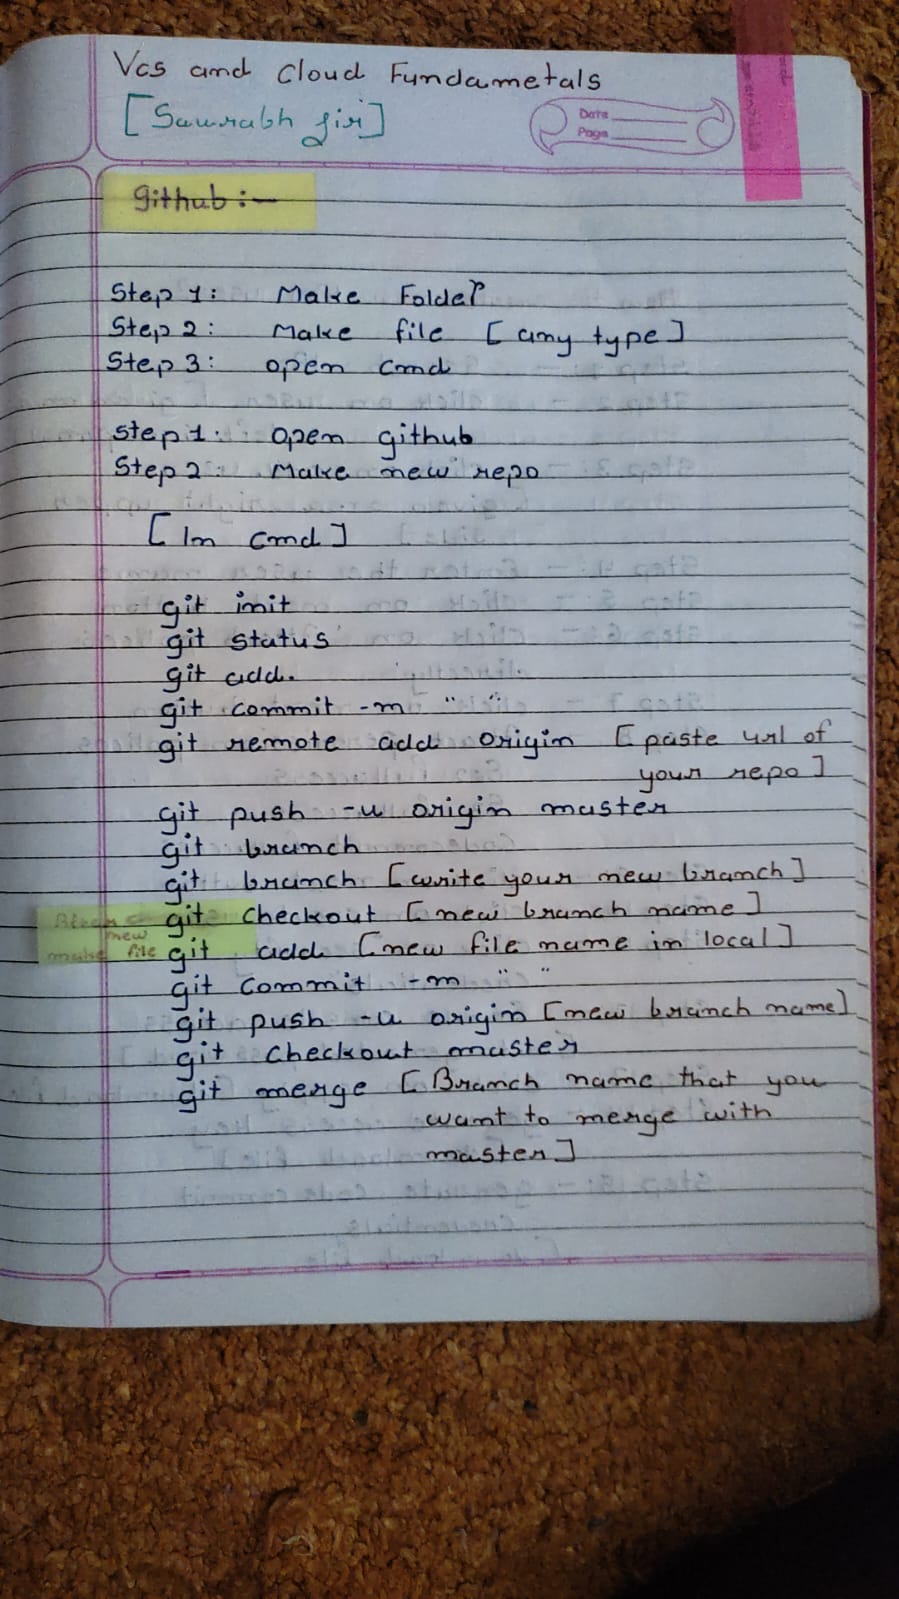 Vcs and Cloud Fundametals
[Saurabh Sir]
Date
Page
Github :-
Step 1: Make Folder
Step 2: Make file [any type]
Step 3: open cmd
Step 1: open github
Step 2: Make new repo
[In cmd]
git init
git status
git add.
git commit -m " "
git remote add origin [paste url of
your repo]
git push -u origin master
git branch
git branch [write your new branch]
git checkout [new branch name]
new
make file
git add [new file name in local]
git commit -m " "
git push -u origin [new branch name]
git checkout master
git merge [Branch name that you
want to merge with
master]